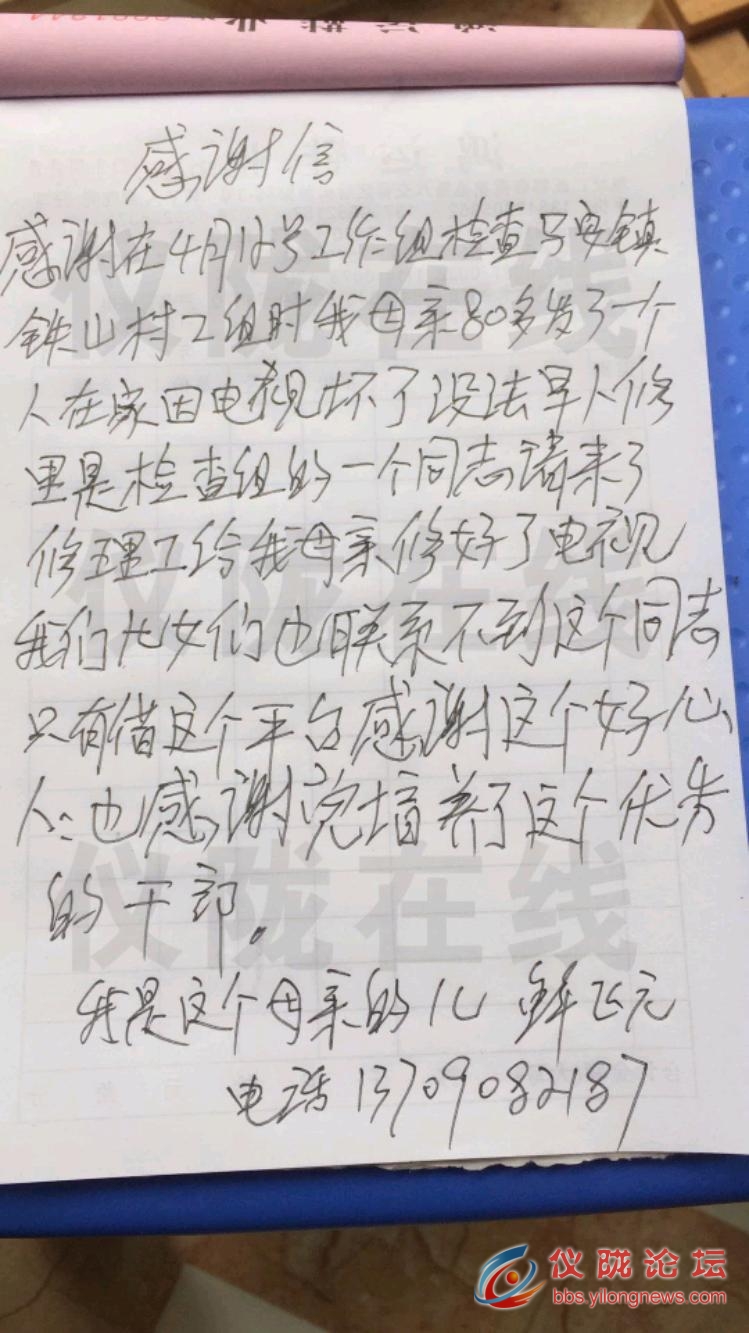 感谢信
感谢在4月12号工作组检查马安镇
铁山村2组时我母亲80多岁了一个
人在家因电视坏了没法早人修
里是检查组的一个同志请来了
修理工给我母亲修好了电视
我们儿女们也联系不到这个同志
只有借这个平台感谢这个好心
人:也感谢党培养了这个优秀
的干部。
我是这个母亲的儿 鲜飞元
电话13709082187
仪陇在线
仪陇在线
仪陇在线
仪陇论坛
bbs.yilongnews.com